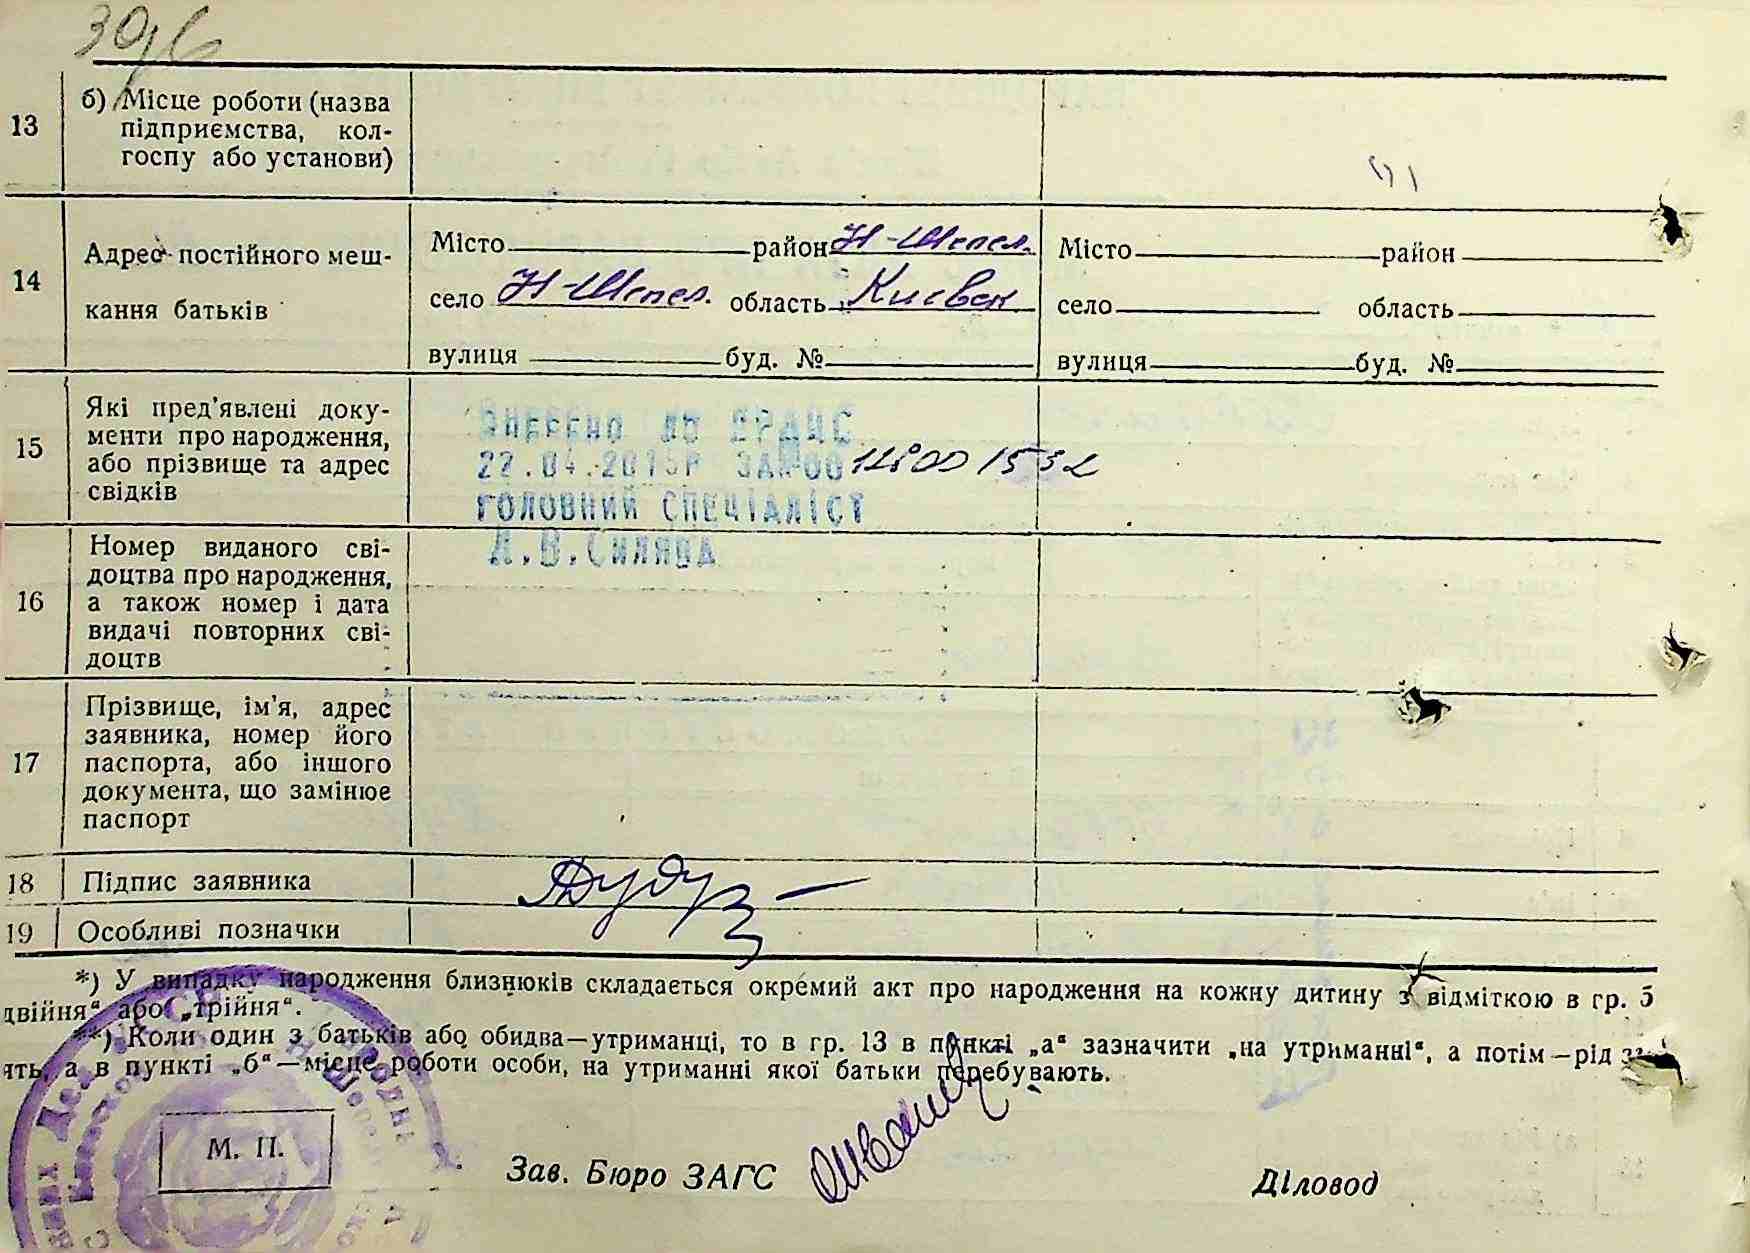 30/6
13
б) Місце роботи (назва
підприємства, кол-
госпу або установи)
14
Адрес постійного меш-
кання батьків
Місто район Н-Шепел.
село Н-Шепел. область Киевск
вулиця буд. №
Місто район
село область
вулиця буд. №
15
Які пред'явлені доку-
менти про народження,
або прізвище та адрес
свідків
ВНЕСЕНО ДО ДРАЦС
ГОЛОВНИЙ СПЕЦІАЛІСТ
16
Номер виданого сві-
доцтва про народження,
а також номер і дата
видачі повторних сві-
доцтв
17
Прізвище, ім'я, адрес
заявника, номер його
паспорта, або іншого
документа, що замінює
паспорт
18 Підпис заявника
19 Особливі позначки
*) У випадку народження близнюків складається окремий акт про народження на кожну дитину з відміткою в гр. 5
двійня“ або „трійня“.
**) Коли один з батьків або обидва—утриманці, то в гр. 13 в пункті „а“ зазначити „на утриманні“, а потім—рід
ять, а в пункті „б“—місце роботи особи, на утриманні якої батьки перебувають.
М. П.
Зав. Бюро ЗАГС
Діловод